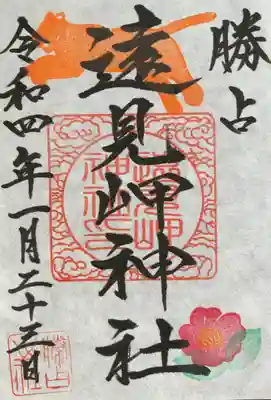 勝占
遠見岬神社
令和四年一月二十三日